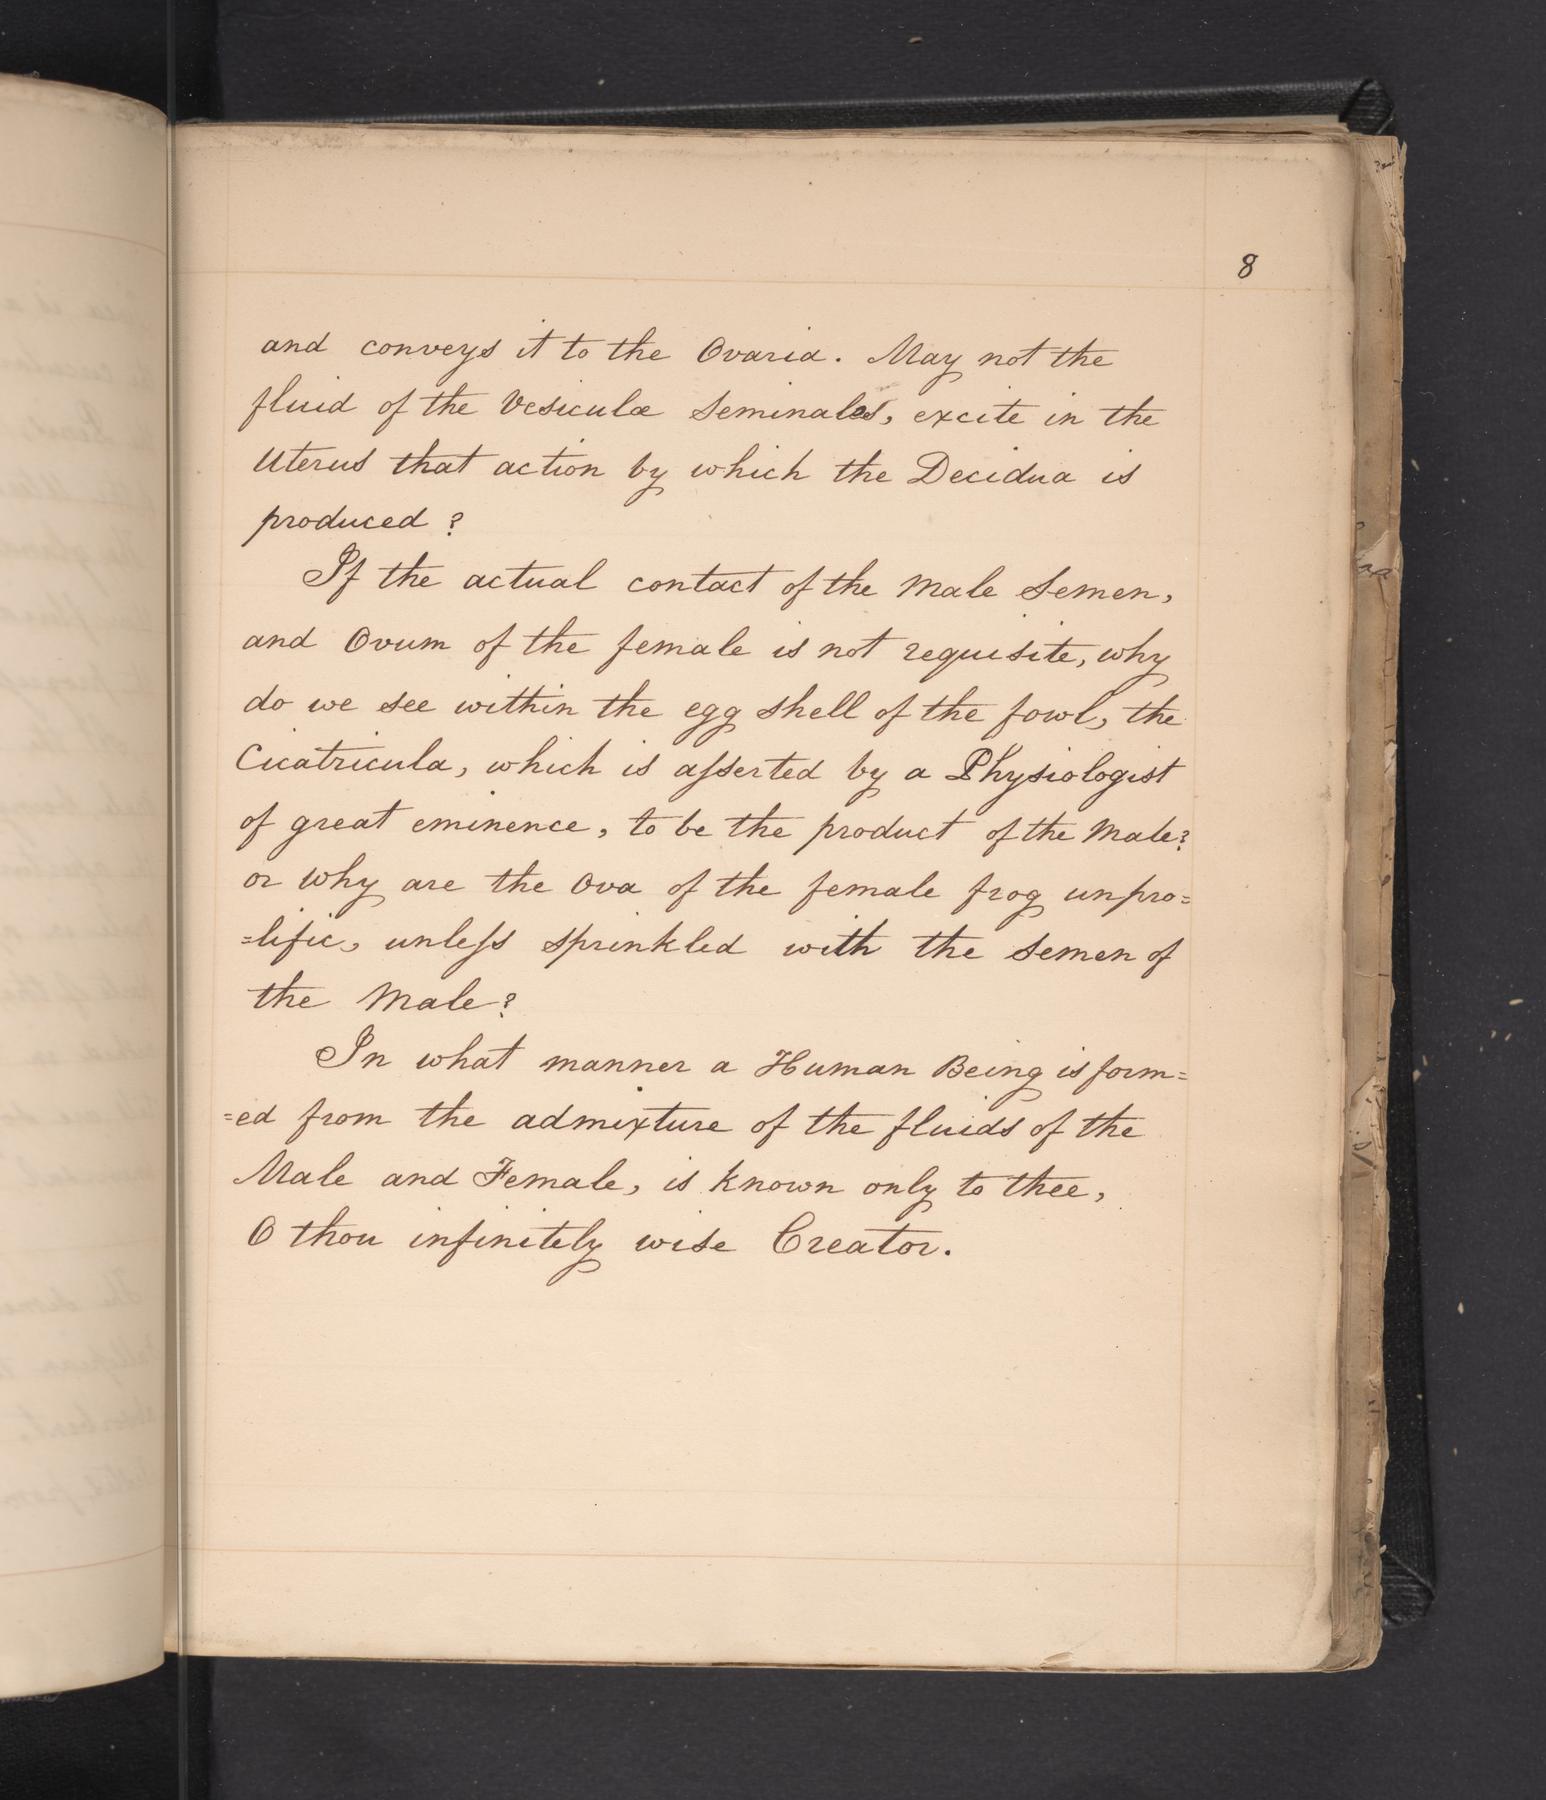 8
and conveys it to the Ovaria. May not the
fluid of the Vesiculæ Seminales, excite in the
Uterus that action by which the Decidua is
produced?
If the actual contact of the Male Semen,
and Ovum of the female is not requisite, why
do we see within the egg shell of the fowl, the
Cicatricula, which is aſserted by a Physiologist
of great eminence, to be the product of the Male?
or why are the Ova of the female frog unpro=
=lific, unleſs sprinkled with the Semen of
the Male?
In what manner a Human Being is form=
=ed from the admixture of the fluids of the
Male and Female, is known only to thee,
O thou infinitely wise Creator.